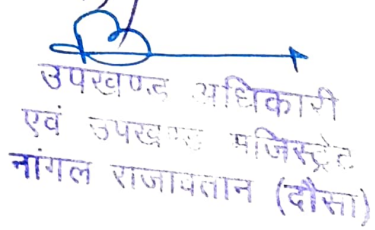 उपखण्ड अधिकारी
एवं उपखण्ड मजिस्ट्रेट
नांगल राजावतान (दौसा)